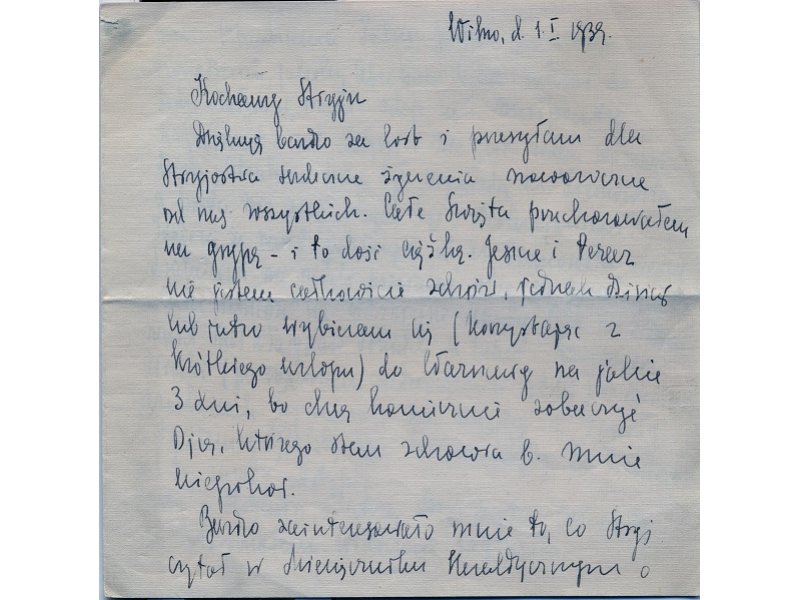 Wilno, d. 1.I.1939.
Kochany Stryju
Dziękuję bardzo za list i przesyłam dla
Stryjostwa serdeczne życzenia noworoczne
od nas wszystkich. Całe Święta przechorowałem
na grypę - i to dość ciężką. Jeszcze i teraz
nie jestem całkowicie zdrów, jednak dzisiaj
lub jutro wybieram się (korzystając z
krótkiego urlopu) do Warszawy na jakie
3 dni, bo chcę koniecznie zobaczyć
Ojca, którego stan zdrowia b. mnie
niepokoi.
Bardzo zainteresowało mnie to, co Stryj
czytał w Miesięczniku Heraldycznym o